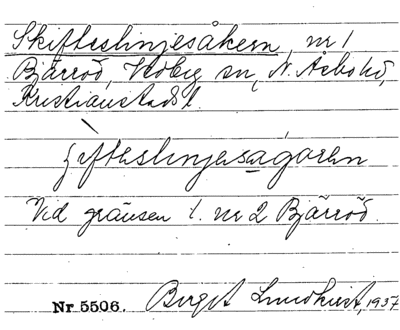 Skifteslinjesåkern, nr 1
Bjärröd, Vedby sn, N. Åsbo hd,
Kristianstads l.
ʃifteslinjersagóren
Vid gränsen t. nr 2 Bjärröd.
Nr 5506. Birgit Lundkvist, 1937